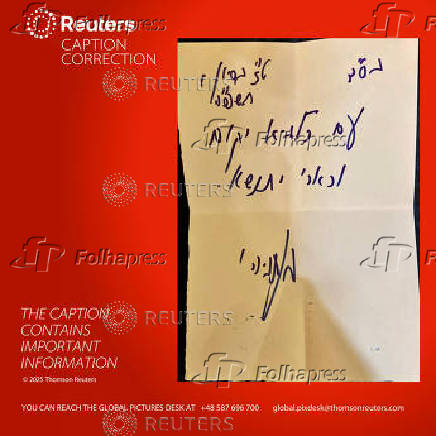 Reuters
CAPTION
CORRECTION
Folhapress
Folhapress
REUTERS
בס"ד
ט"ז בסיון
תשפ"ה
עם כלביא יקום
וכארי יתנשא
Folhapress
REUTERS
Folhapress
Folhapress
THE CAPTION
CONTAINS
IMPORTANT
INFORMATION
REUTERS
© 2025 Thomson Reuters
Folhapress
YOU CAN REACH THE GLOBAL PICTURES DESK AT +48 587 696 700 global.pixdesk@thomsonreuters.com
REUTERS